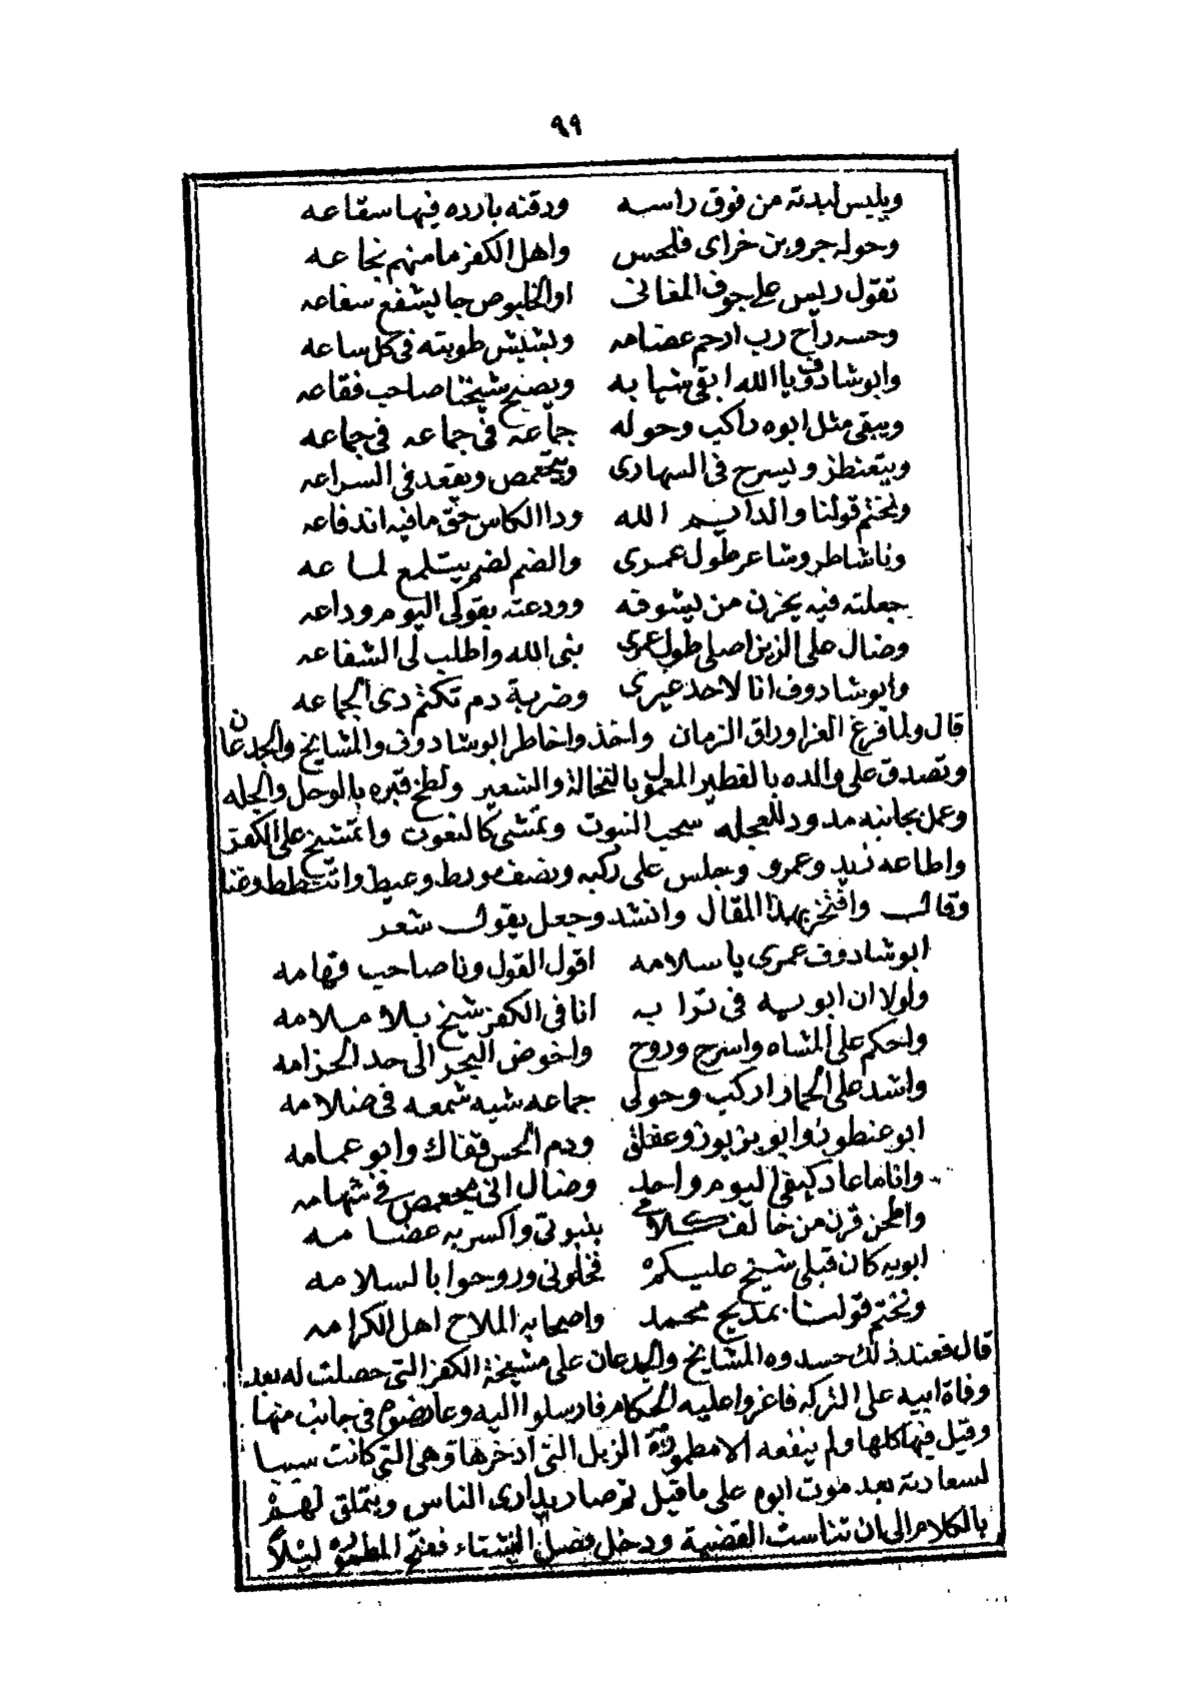 ٩٩
ويلبس لبدته من فوق راسه ودقنه بارده فيها سقاعه
وحوله جرو بن خراى فلحس واهل الكفر ما منهم نجاعه
تقول ريس على جوف المغانى او الخلبوص جا يشفع سفاعه
وحسه راح رب ارحم عضامه وبشبش طوبته فى كل ساعه
وابو شادوف يا الله ابقى شبابه ويصبح شيخنا صاحب فقاعه
ويبقى مثل ابوه راكب وحوله جماعه فى جماعه فى جماعه
ويتعنطز ويسرح فى السهادى ويتجعمص ويقعد فى السراعه
ونختم قولنا والدايم الله ودا الكاس حق ما فيه اندفاعه
ونا شاطر وشاعر طول عمرى والضم لضم يتلمع لماعه
جعلته فيه يحزن من يشوفه وودعته بقولى اليوم وداعه
وضال على الزين اصلى طول عمرى بنى الله واطلب لى الشفاعه
وابو شادوف انا لاحد غيرى وضربة دم تكتم دى الجماعه
قال ولما فرغ العزا وراق الزمان واخذوا خاطر ابو شادوف والمشايخ والجدعان
وتصدق على والده بالفطير المعمول بالنخالة والشعير ولطخ قبره بالوحل والجله
وعمل بجانبه مدود للعجله سحب النبوت وتمشى كالنعوت واتمشيخ على الكفر
واطاعه زيد وعمرو وجلس على ركبه ونصف وربط وعيط وانتطط
وقالب وافتخر بهذا المقال وانشد وجعل يقول شعر
ابو شادوف عمرى يا سلامه اقول القول ونا صاحب فهامه
ولولا ان ابويه فى ترابه انا فى الكفر شيخ بلا ملامه
واحكم على المشاه واسرح وروح واخوض البحر الى حد الحزامه
واشد على الحمار اركب وحولى جماعه شبه شمعه فى ضلامه
ابو عنطوز وابو بربور وعفلق ودم الحس قفاك وابو عمامه
وانا ما عاد كيفى اليوم واحد وضال انى مجعمص فى شهامه
واطحن قرن من خالف كلامى بنبوتى واكسر به عضامه
ابويه كان قبلى شيخ عليكم فخلونى وروحوا بالسلامه
ونختم قولنا بمديح محمد واصحابه الملاح اهل الكرامه
قال فعند ذلك حسدوه المشايخ والجدعان على مشيخة الكفر التى حصلت له بعد
وفاة ابيه على التركه فاغروا عليه الحكام فارسلوا اليه وعارضوه فى جانب منها
وقيل فيها كلها ولم ينفعه الا مطمورة الزبل التى ادخرها وهى التى كانت سببا
لسعادته بعد موت ابوه على ما قيل ثم صار يدارى الناس ويتملق لهم
بالكلام الى ان تناست القضية ودخل فصل الشتاء ففتح المطموره ليلاً